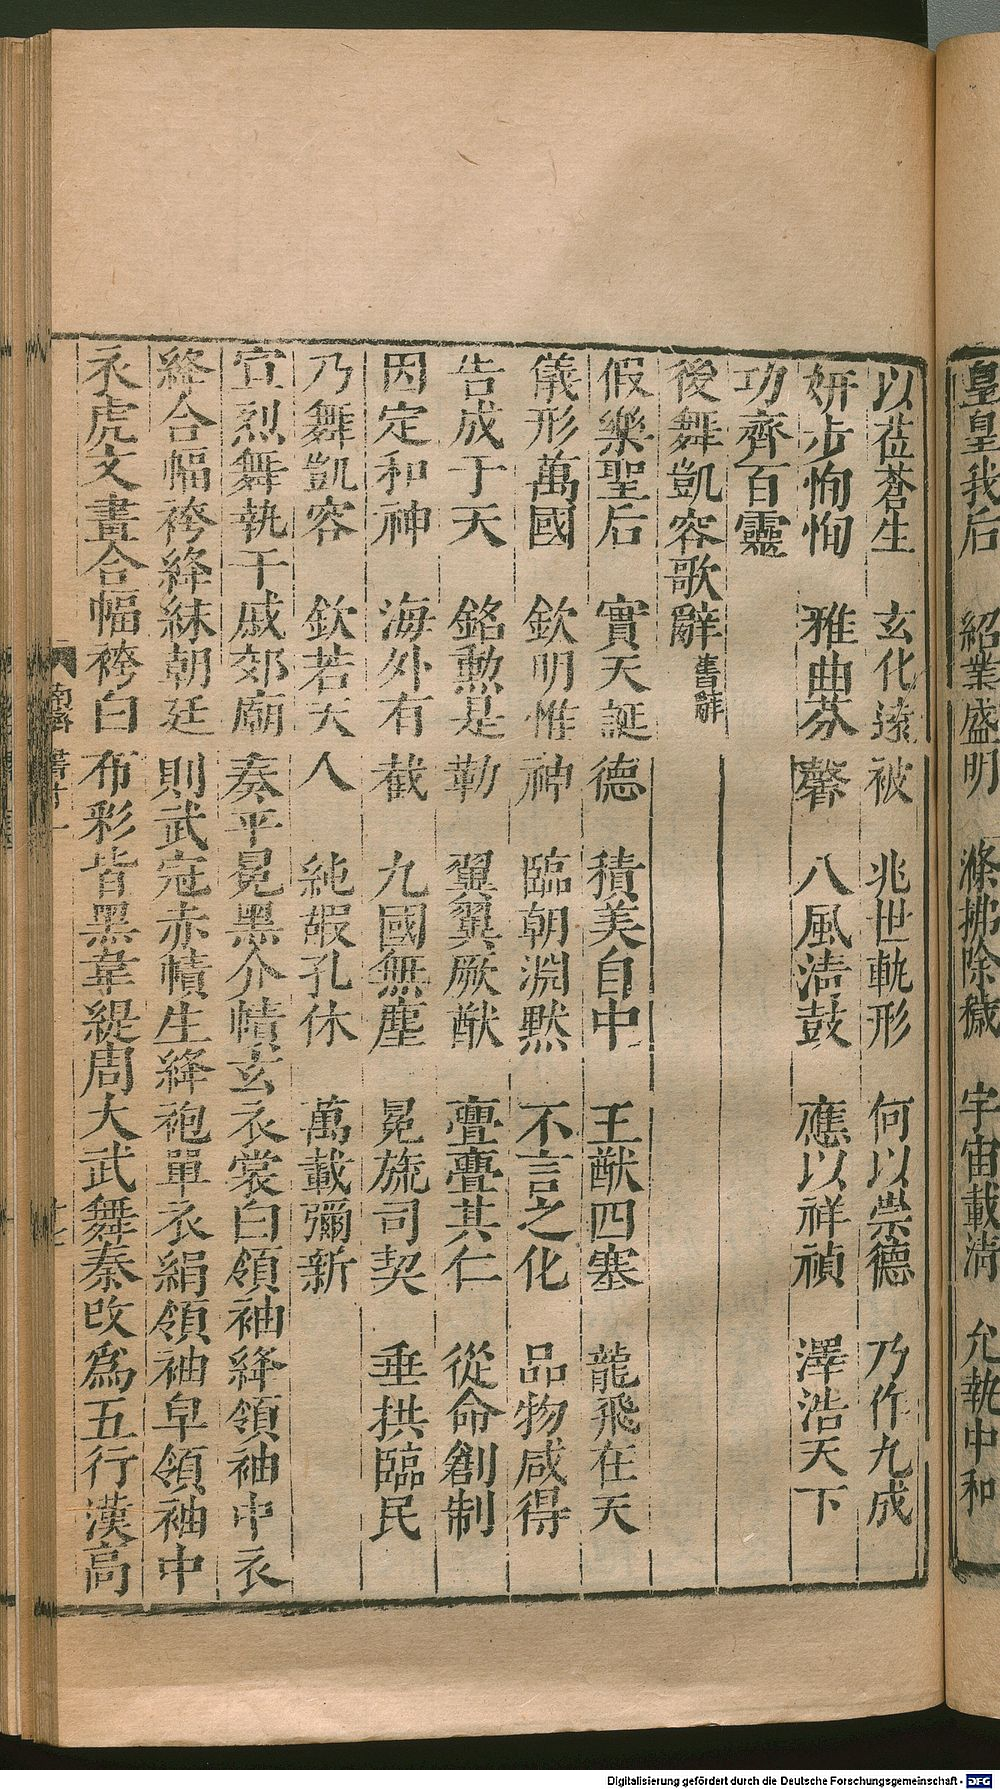 皇皇我后　紹業盛明　滌拂除穢　宇宙載淸　允執中和
以莅蒼生　玄化遠被　兆世軌形　何以崇德　乃作九成
妍步恂恂　雅曲芬馨　八風淸鼓　應以祥禎　澤浩天下
功齊百靈
後舞凱容歌辭舊辭
假樂聖后　實天誕德　積美自中　王猷四塞　龍飛在天
儀形萬國　欽明惟神　臨朝淵默　不言之化　品物咸得
告成于天　銘勲是勒　翼翼厥猷　亹亹其仁　從命創制
因定和神　海外有截　九國無塵　冕旒司契　垂拱臨民
乃舞凱容　欽若天人　純嘏孔休　萬載彌新
宣烈舞執干戚郊廟奏平冕黑介幘玄衣裳白領袖絳領袖中衣
絳合幅袴絳絉朝廷則武冠赤幘生絳袍單衣絹領袖皁領袖中
衣虎文畫合幅袴白布彩皆黑韋緹周大武舞秦改爲五行漢高
南齊書十一
十七
Digitalisierung gefördert durch die Deutsche Forschungsgemeinschaft - DFG